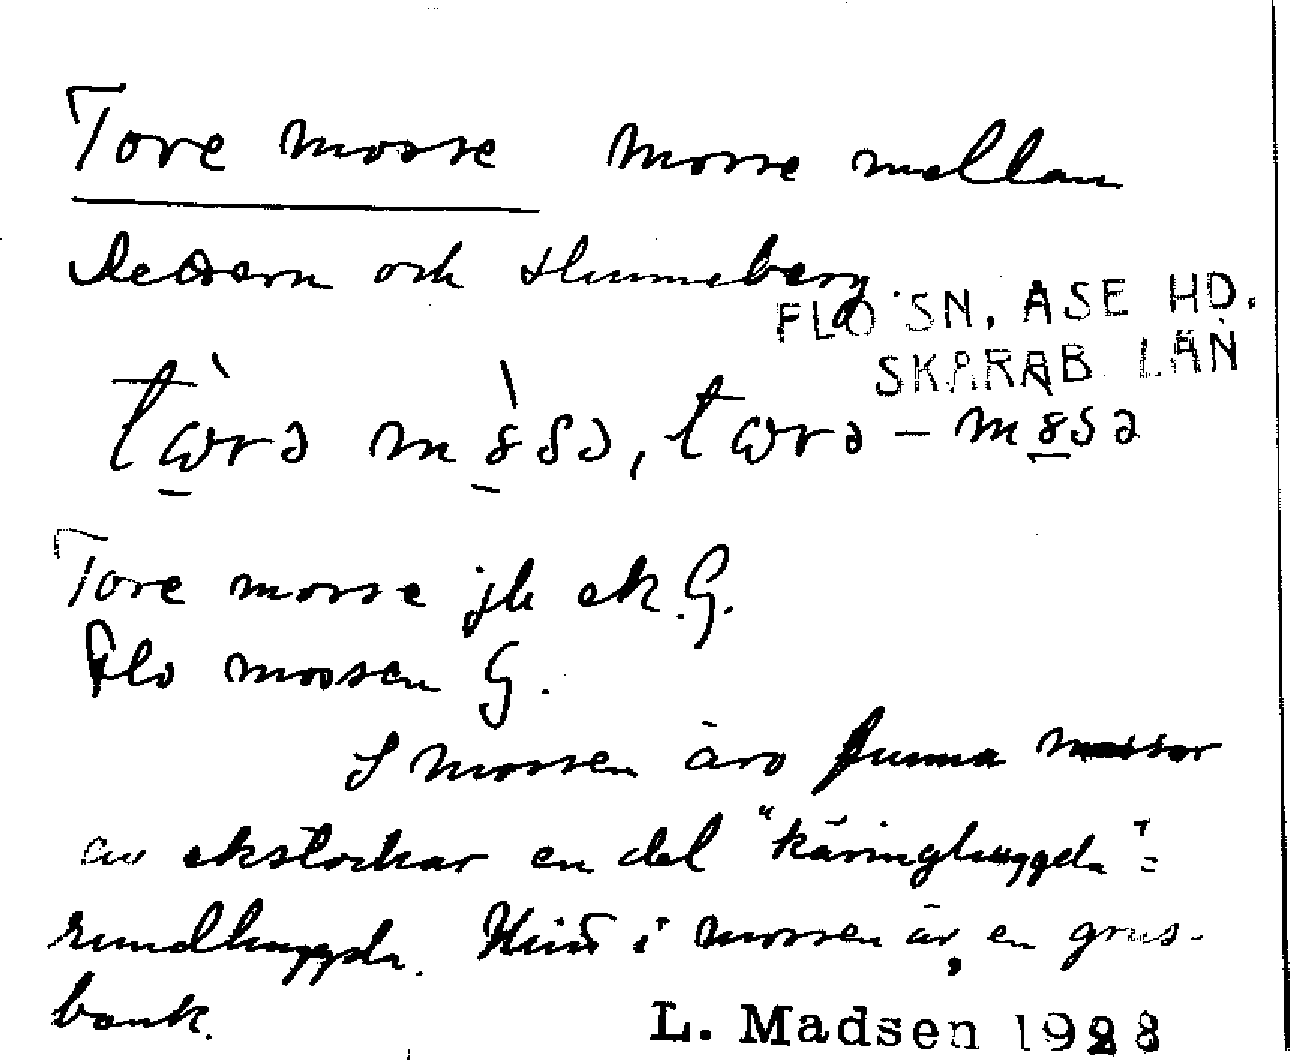 Tore mosse mosse mellan
och Hunneberg
FLO SN, ASE HD.
SKARAB LÄN
tɷ̀rə m, tɷrə –
Tore mosse jb ek. G.
Flo mossen G.
I mossen äro funna massor
av ekstockar en del "käringhuggda" =
rundhuggda. i mossen är en grus-
bank.
L. Madsen 1928